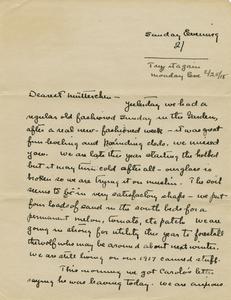 Sunday Evening
2/
Try it again
Monday Eve 2/25/18
Dearest Mütterchen —
Yesterday we had a
regular old fashioned Sunday in the Garden,
after a real new-fashioned week — it was great
fun leveling and pounding clods. We missed
you. We are late this year starting the hotbed
but it may turn cold after all - our glass is
broken so we are trying it on muslin. The soil
seems to be in very satisfactory shape - we put
four loads of sand in the south beds for a
permanent melon, tomato, etc patch. We are
going in strong for utility this year to forestall
the wolf who may be around about next winter.
We are still living on our 1917 canned stuff.
This morning we got Carol's letter
saying he was leaving today. We are so anxious